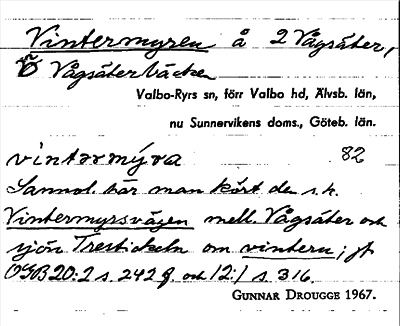 Vintermyren å 2 Vågsäter,
Ö Vågsäterbäcken
Valbo-Ryrs sn, förr Valbo hd, Älvsb. län,
nu Sunnervikens doms., Göteb. län.
vintərmýra 82
Sannol. här man kört den s.k.
Vintermyrsvägen mell. Vågsäter och
sjön Trestickeln om vintern; jf
OGB 20:2 s. 242 f. och 12:1 s. 316.
GUNNAR DROUGGE 1967.